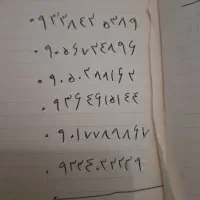 ۰۹۳۳۸۴۲۵۳۸۹
۰۹۰۵۶۷۳۴۸۹۶
۰۹۰۵۰۲۸۸۱۶۲
۰۹۳۶۴۶۱۵۱۴۴
۰۹۰۱۷۷۸۹۸۶۷
۰۹۳۳۴۰۲۲۲۳۹